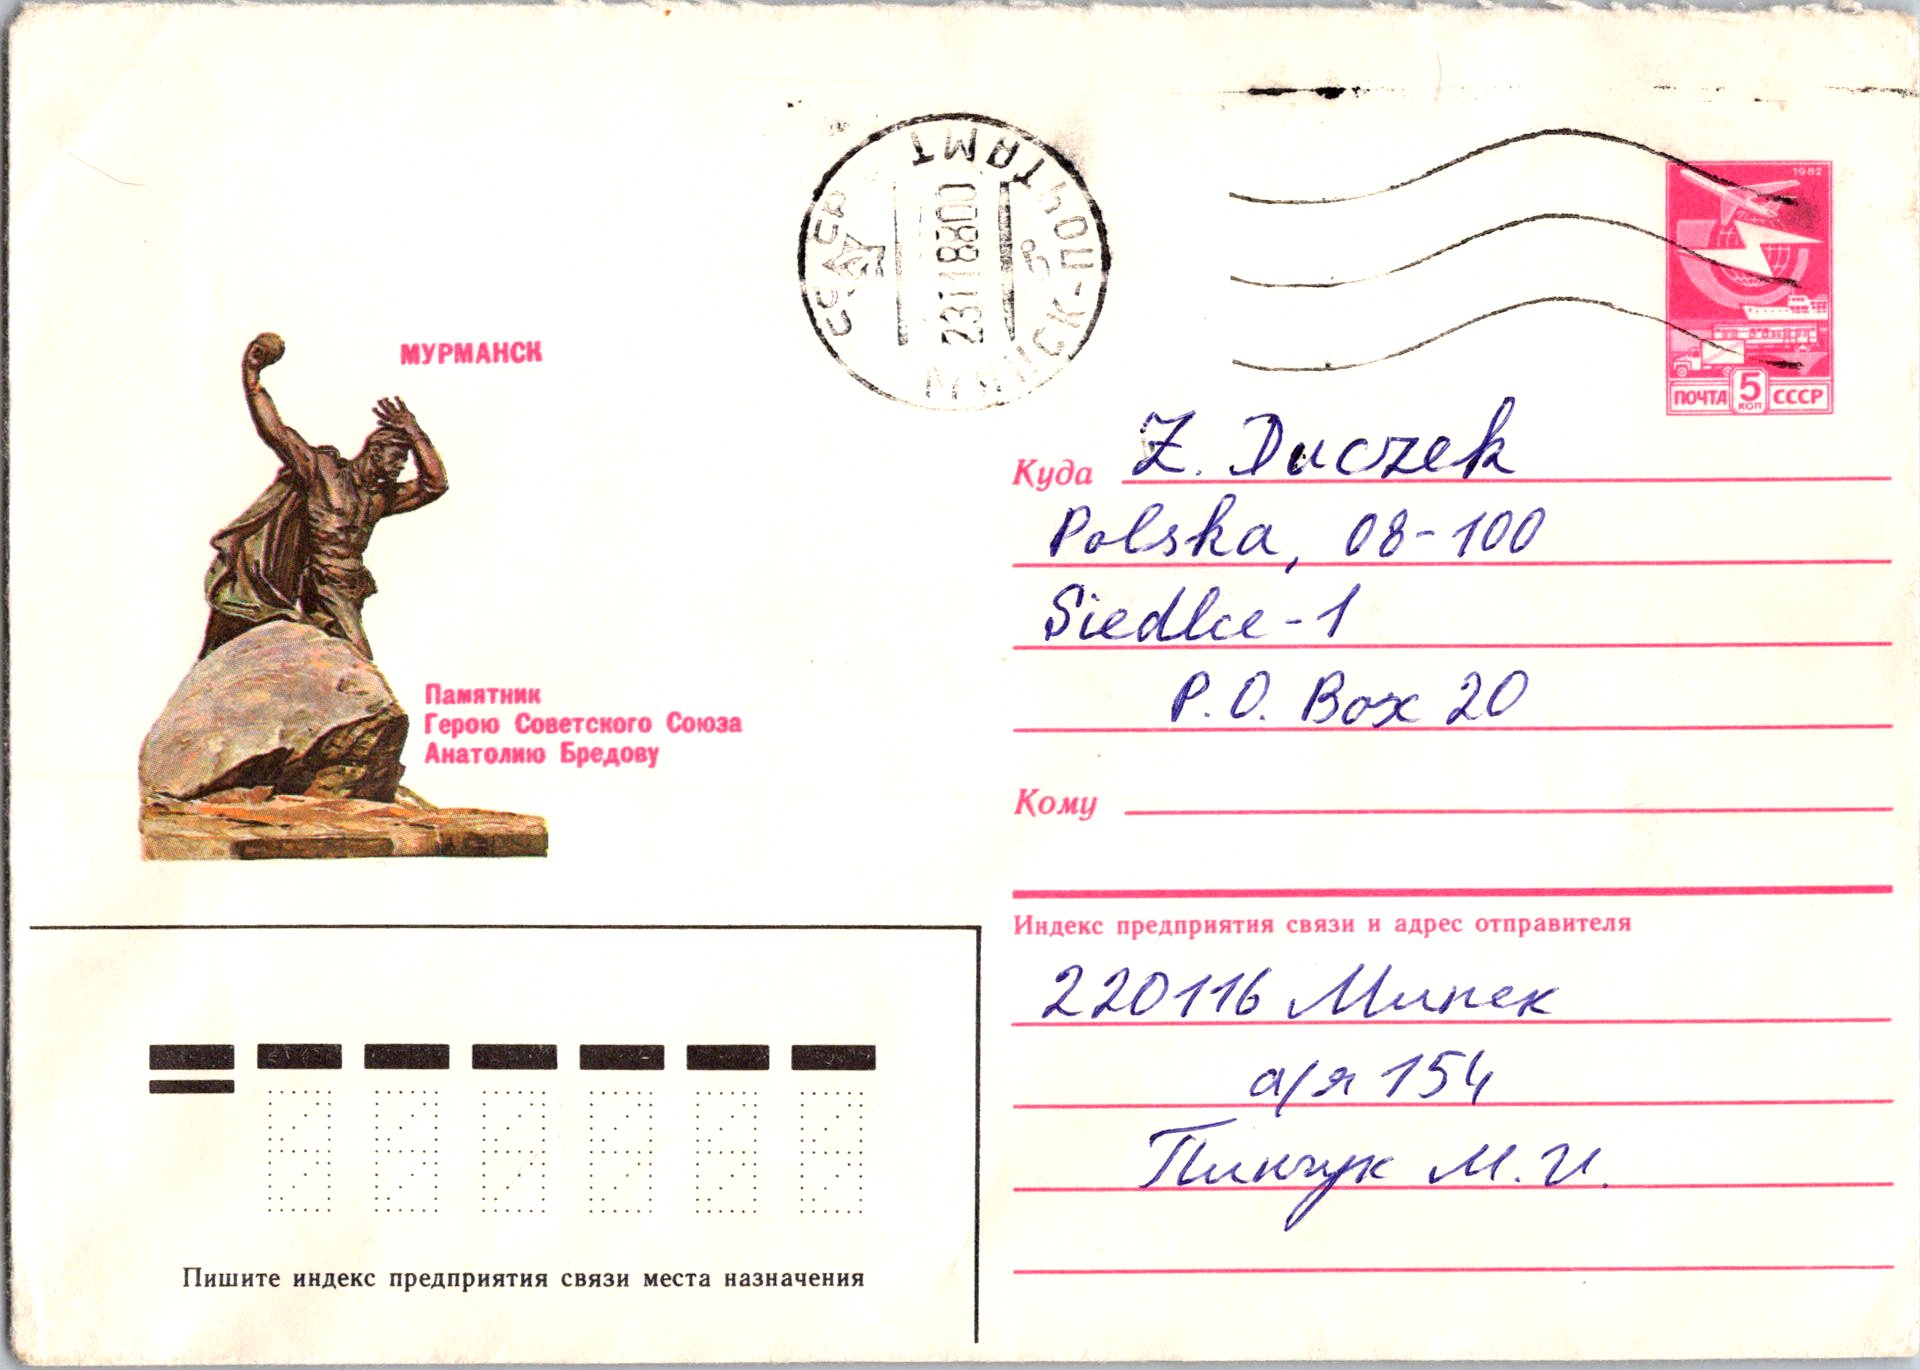 МУРМАНСК
Памятник
Герою Советского Союза
Анатолию Бредову
СССР
МИНСК-ПОЧТАМТ
1982
ПОЧТА 5 КОП СССР
Куда Z. Duczek
Polska, 08-100
Siedlce-1
P.O. Box 20
Кому
Индекс предприятия связи и адрес отправителя
220116 Минск
а/я 154
Пинчук М.И.
Пишите индекс предприятия связи места назначения